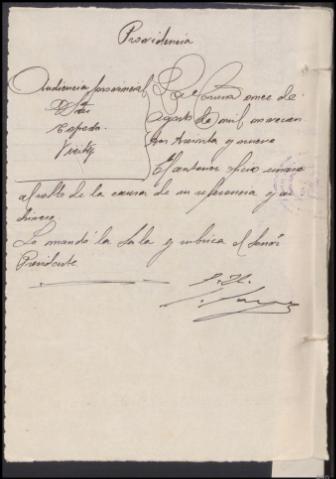 Providencia
Audiencia provincial
Sres
Cepeda
La Coruña once de
Agosto de mil novecien
tos treinta y nueve
El anterior oficio únase
al rollo de la causa de su referencia y
Lo mandó la Sala y rubrica el Señor
Presidente